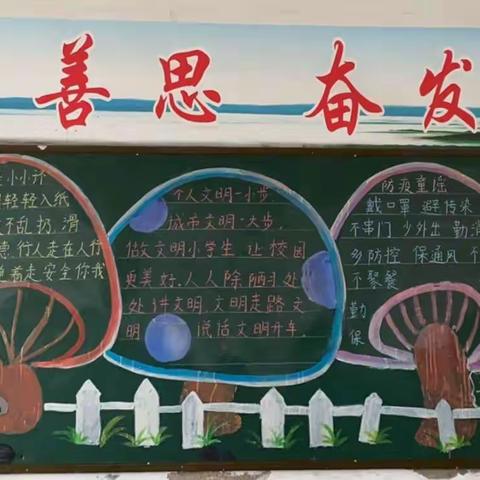 善思 奋发
小小
轻轻入纸
不乱扔,滑
德,行人走在人行
着走安全你我
个人文明一小步
城市文明一大步,
做文明小学生 让校园
更美好,人人除陋习处
处讲文明,文明走路文
明 说话文明开车,
防疫童谣
戴口罩 避传染
不串门 少外出 勤消
乡防控 保通风 不
不聚餐
勤
保